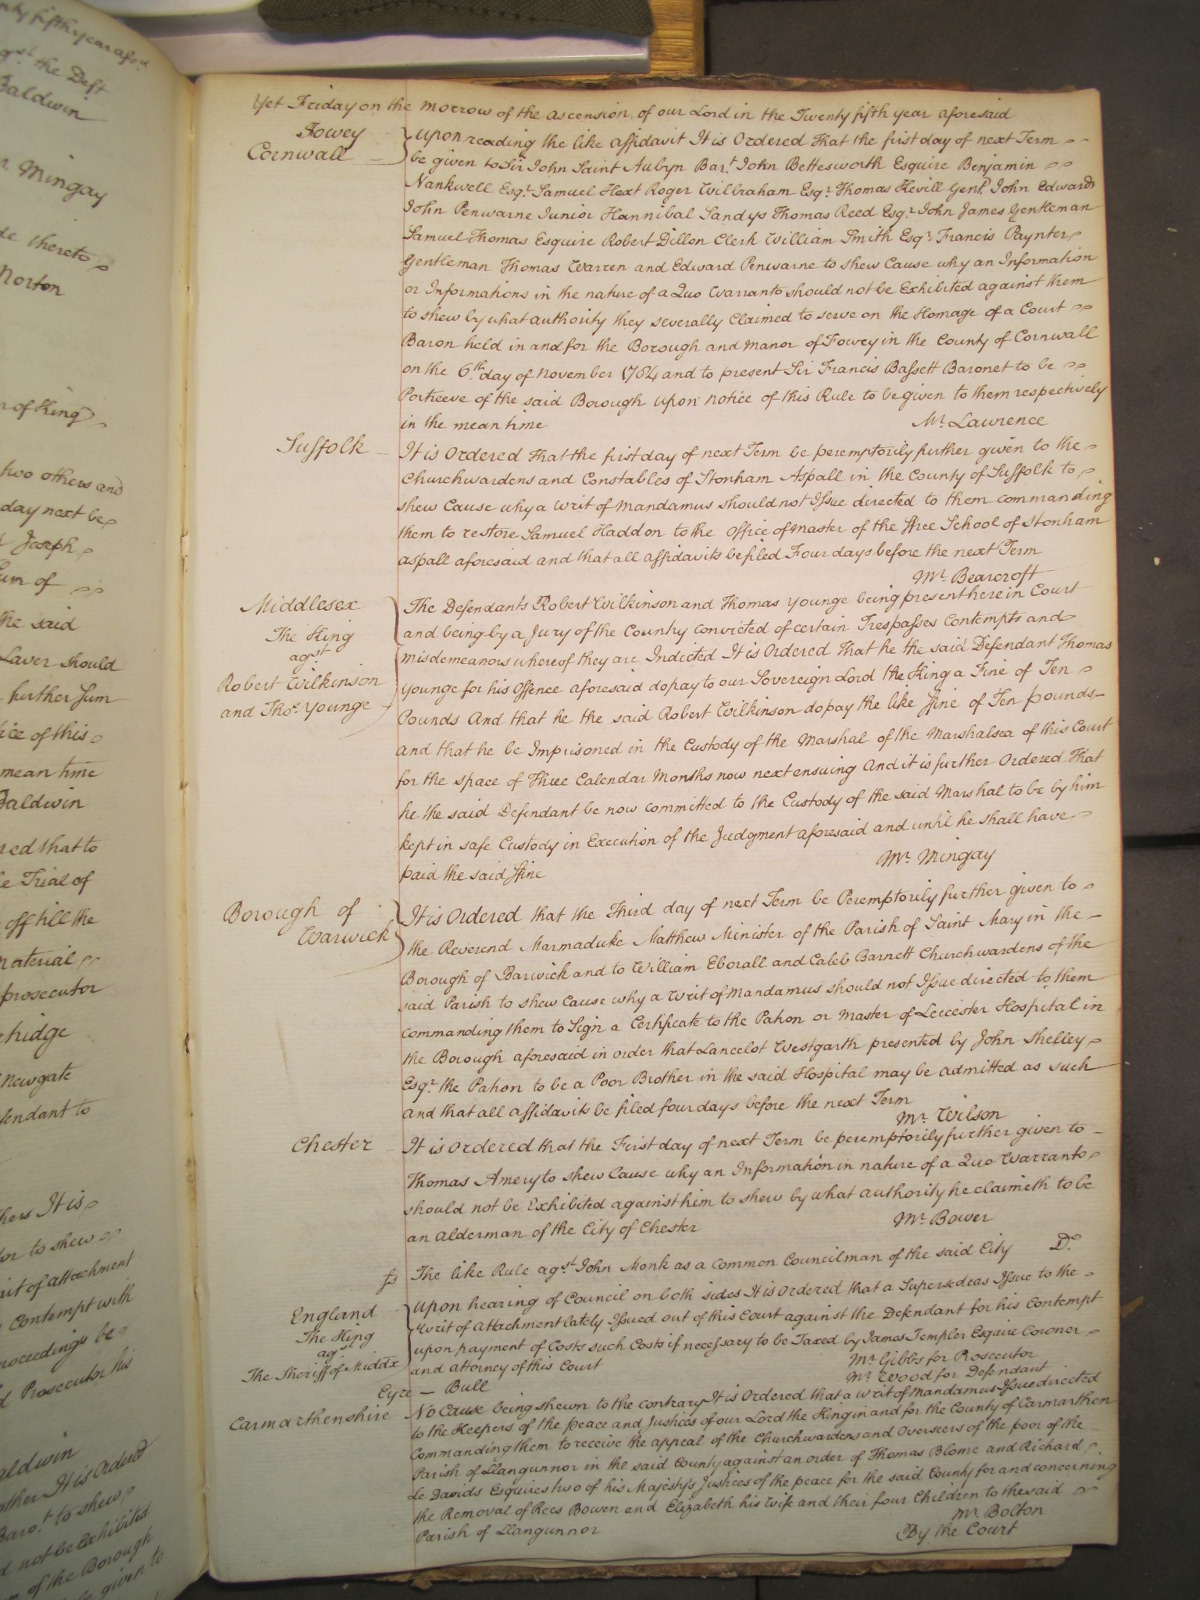 nty fifth year afsd
agst the Deft
Baldwin
Mingay
de thereto
Norton
n of King
two others and
day next be
Joseph
um of
the said
Laver should
further Sum
ice of this
mean time
Baldwin
red that to
e Trial of
off till the
material
prosecutor
Newgate
fendant to
thers It is
or to shew
rit of attachment
Contempt with
proceedings be
d Prosecutor his
aldwin
other It is Ordered
Barot to shew
d not be Exhibited
of the Borough
be given to
Yet Friday on the Morrow of the Ascension of our Lord in the Twenty fifth year aforesaid
Fowey
Cornwall
Upon reading the like affidavit It is Ordered That the first day of next Term
be given to Sir John Saint Aubyn Bart. John Bettesworth Esquire Benjamin
Nankwell Esqr. Samuel Hext Roger Wilbraham Esqr. Thomas Hevill Gent. John Edwards
John Penwarne Junior Hannibal Sandys Thomas Reed Esqr. John James Gentleman
Samuel Thomas Esquire Robert Dillon Clerk William Smith Esqr. Francis Paynter
Gentleman Thomas Warren and Edward Penwarne to shew Cause why an Information
or Informations in the nature of a Quo Warranto should not be Exhibited against them
to shew by what authority they severally Claimed to serve on the Homage of a Court
Baron held in and for the Borough and Manor of Fowey in the County of Cornwall
on the 6th. day of November 1784 and to present Sir Francis Bassett Baronet to be
Portreeve of the said Borough upon notice of this Rule to be given to them respectively
in the mean time
Mr. Lawrence
Suffolk
It is Ordered That the first day of next Term be peremptorily further given to the
Churchwardens and Constables of Stonham Aspall in the County of Suffolk to
shew Cause why a writ of Mandamus should not Issue directed to them commanding
them to restore Samuel Haddon to the Office of Master of the ffree School of Stonham
Aspall aforesaid and that all affidavits be filed Four days before the next Term
Mr. Bearcroft
Middlesex
The King
agst
Robert Wilkinson
and Thos. Younge
The Defendants Robert Wilkinson and Thomas Younge being present here in Court
and being by a Jury of the Country convicted of certain Trespasses Contempts and
misdemeanors whereof they are Indicted It is Ordered That he the said Defendant Thomas
Younge for his Offence aforesaid do pay to our Sovereign Lord the King a Fine of Ten
Pounds And that he the said Robert Wilkinson do pay the like ffine of Ten pounds
and that he be Imprisoned in the Custody of the Marshal of the Marshalsea of this Court
for the space of Three Calendar Months now next ensuing And it is further Ordered That
he the said Defendant be now committed to the Custody of the said Marshal to be by him
kept in safe Custody in Execution of the Judgment aforesaid and until he shall have
paid the said ffine
Mr. Mingay
Borough of
Warwick
It is Ordered that the Third day of next Term be Peremptorily further given to
the Reverend Marmaduke Matthew Minister of the Parish of Saint Mary in the
Borough of Warwick and to William Eborall and Caleb Barnett Churchwardens of the
said Parish to shew Cause why a Writ of Mandamus should not Issue directed to them
commanding them to Sign a Certificate to the Patron or Master of Leicester Hospital in
the Borough aforesaid in order that Lancelot Westgarth presented by John Shelley
Esqr. the Patron to be a Poor Brother in the said Hospital may be admitted as such
and that all affidavits be filed four days before the next Term
Mr. Wilson
Chester
It is Ordered that the First day of next Term be peremptorily further given to
Thomas Amery to shew Cause why an Information in nature of a Quo Warranto
should not be Exhibited against him to shew by what authority he claimeth to be
an Alderman of the City of Chester
Mr. Bower
fs
The like Rule agst. John Monk as a Common Councilman of the said City
Do.
England
The King
agst
The Sheriff of Middx
Upon hearing of Council on both sides It is Ordered that a Supersedeas Issue to the
writ of Attachment lately Issued out of this Court against the Defendant for his Contempt
upon payment of Costs such Costs if necessary to be Taxed by James Templer Esquire Coroner
and attorney of this Court
Mr. Gibbs for Prosecutor
Mr. Wood for Defendant
Eyre — Bull
Carmarthenshire
No Cause being shewn to the contrary It is Ordered that a writ of Mandamus Issue directed
to the Keepers of the peace and Justices of our Lord the King in and for the County of Carmarthen
Commanding them to receive the appeal of the Churchwardens and Overseers of the poor of the
Parish of Llangunnor in the said County against an order of Thomas Blome and Richard
de Davids Esquires two of his Majesty's Justices of the peace for the said County for and concerning
the Removal of Rees Bowen and Elizabeth his wife and their four Children to the said
Parish of Llangunnor
Mr. Bolton
By the Court